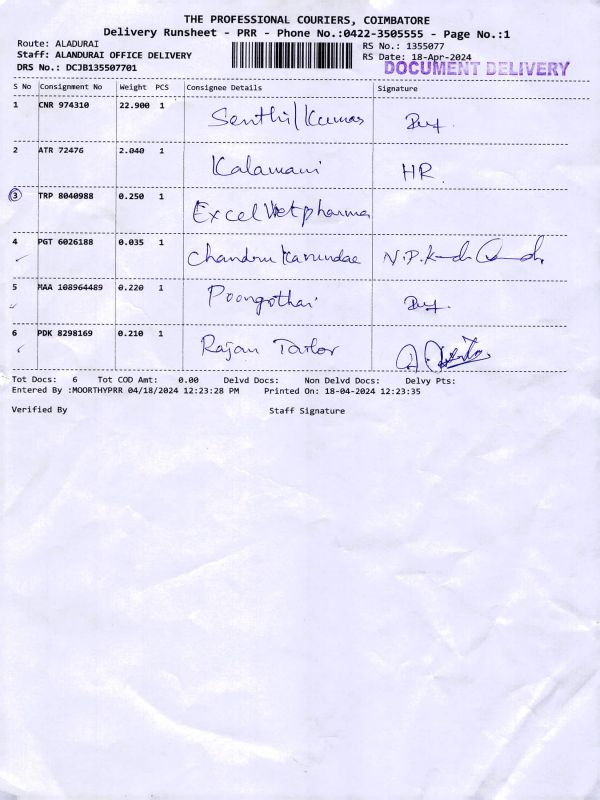 THE PROFESSIONAL COURIERS, COIMBATORE
Delivery Runsheet - PRR - Phone No.:0422-3505555 - Page No.:1
Route: ALADURAI RS No.: 1355077
Staff: ALANDURAI OFFICE DELIVERY RS Date: 18-Apr-2024
DRS No.: DCJB135507701 DOCUMENT DELIVERY
S No Consignment No Weight PCS Consignee Details Signature
1 CNR 974310 22.900 1 Senthil Kumar
2 ATR 72476 2.040 1 Kalamani HR
3 TRP 8040988 0.250 1 Excel Vetpharma
4 PGT 6026188 0.035 1 Chandru
5 MAA 108964489 0.220 1 Poongothai
6 PDK 8298169 0.210 1 Rajan Tailor
Tot Docs: 6 Tot COD Amt: 0.00 Delvd Docs: Non Delvd Docs: Delvy Pts:
Entered By :MOORTHYPRR 04/18/2024 12:23:28 PM Printed On: 18-04-2024 12:23:35
Verified By Staff Signature